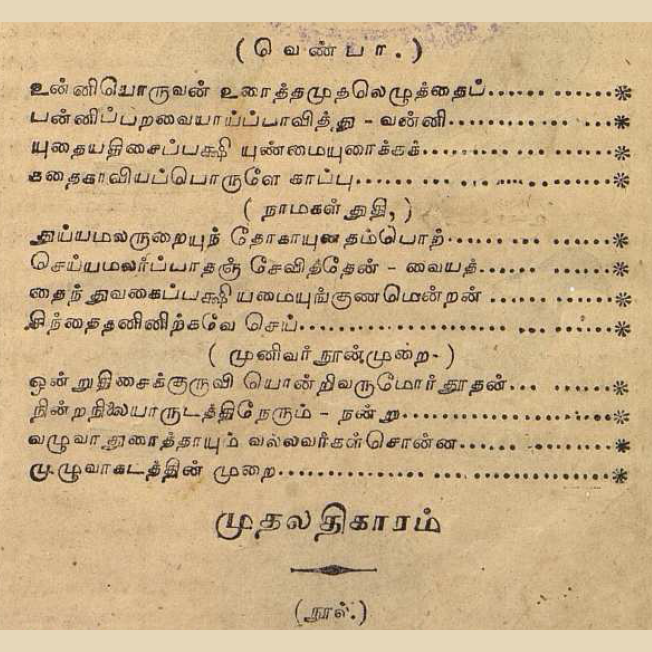 (வெண்பா.)
உன்னியொருவன் உரைத்தமுதலெழுத்தைப்...... ......*
பன்னிப்பறவையாய்ப்பாவித்து - வன்னி......... ......*
யுதையதிசைப்பக்ஷி யுண்மையுரைக்கக்............ ......*
கதைகாவியப்பொருளே காப்பு...... ... ...... ......*
(நாமகள் துதி,)
துய்யமலருறையுந் தோகாயுனதம்பொற்...... ... ......*
செய்யமலர்ப்பாதஞ் சேவித்தேன் - வையத்...... ......*
தைந்துவகைப்பக்ஷியமையுங்குணமென்றன் ... ......*
சிந்தைதனினிற்கவே செய்.................. ... ......*
(முனிவர் நூன்முறை-)
ஒன்றுதிசைக்குருவி யொன்றிவருமோர்தூதன்... ......*
நின்றநிலையாருடத்திநேரும் - நன்று............ ......*
வழுவாதுரைத்தாயும் வல்லவர்கள்சொன்ன...... ......*
முழுவாகடத்தின் முறை............... ... ............*
முதலதிகாரம்
(நூல்.)